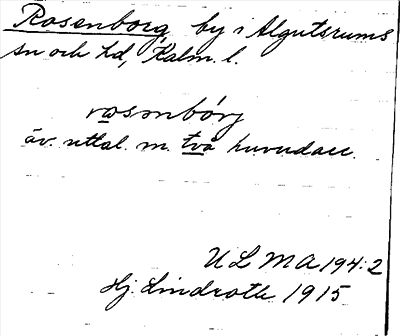 Rosenborg, by i Algutsrums
sn och hd, Kalm. l.
rosmbórj
äv. uttal. m. två huvudacc.
ULMA 194:2
Hj. Lindroth 1915